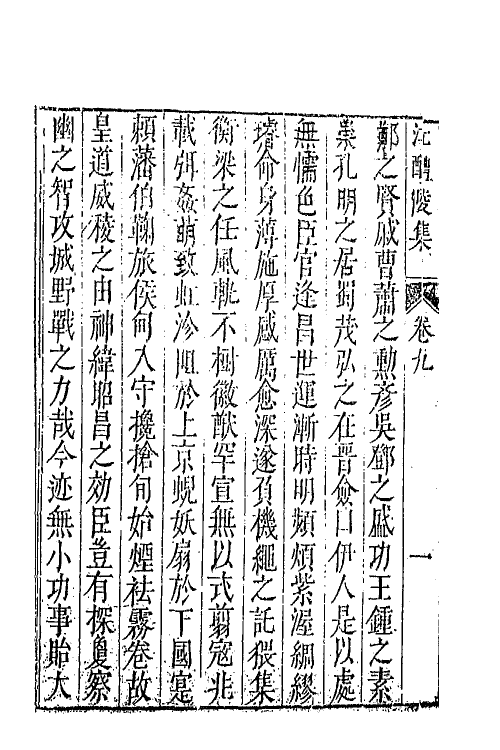 江醴陵集 卷九 一
鄭之賢戚曹蕭之勳彥吳鄧之盛功王鍾之素
業孔明之居蜀茂弘之在晉僉曰伊人是以處
無懦色臣官逢昌世運漸時明頻煩紫渥綢繆
璿命身薄施厚感厲愈深遂負機繩之託猥集
衡梁之任風軌不樹徽猷罕宣無以式翦寇兆
載弭姦萌致虹沴阻於上京蜺妖扇於下國寔
賴藩伯鞠旅侯甸入守攙搶旬始煙袪霧卷故
皇道威稜之由神緯昭昌之効臣豈有探𡖍察
幽之智攻城野戰之力哉今迹無小功事貽大